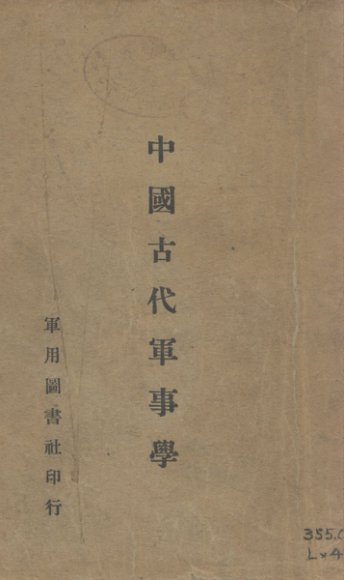 中國古代軍事學
軍用圖書社印行